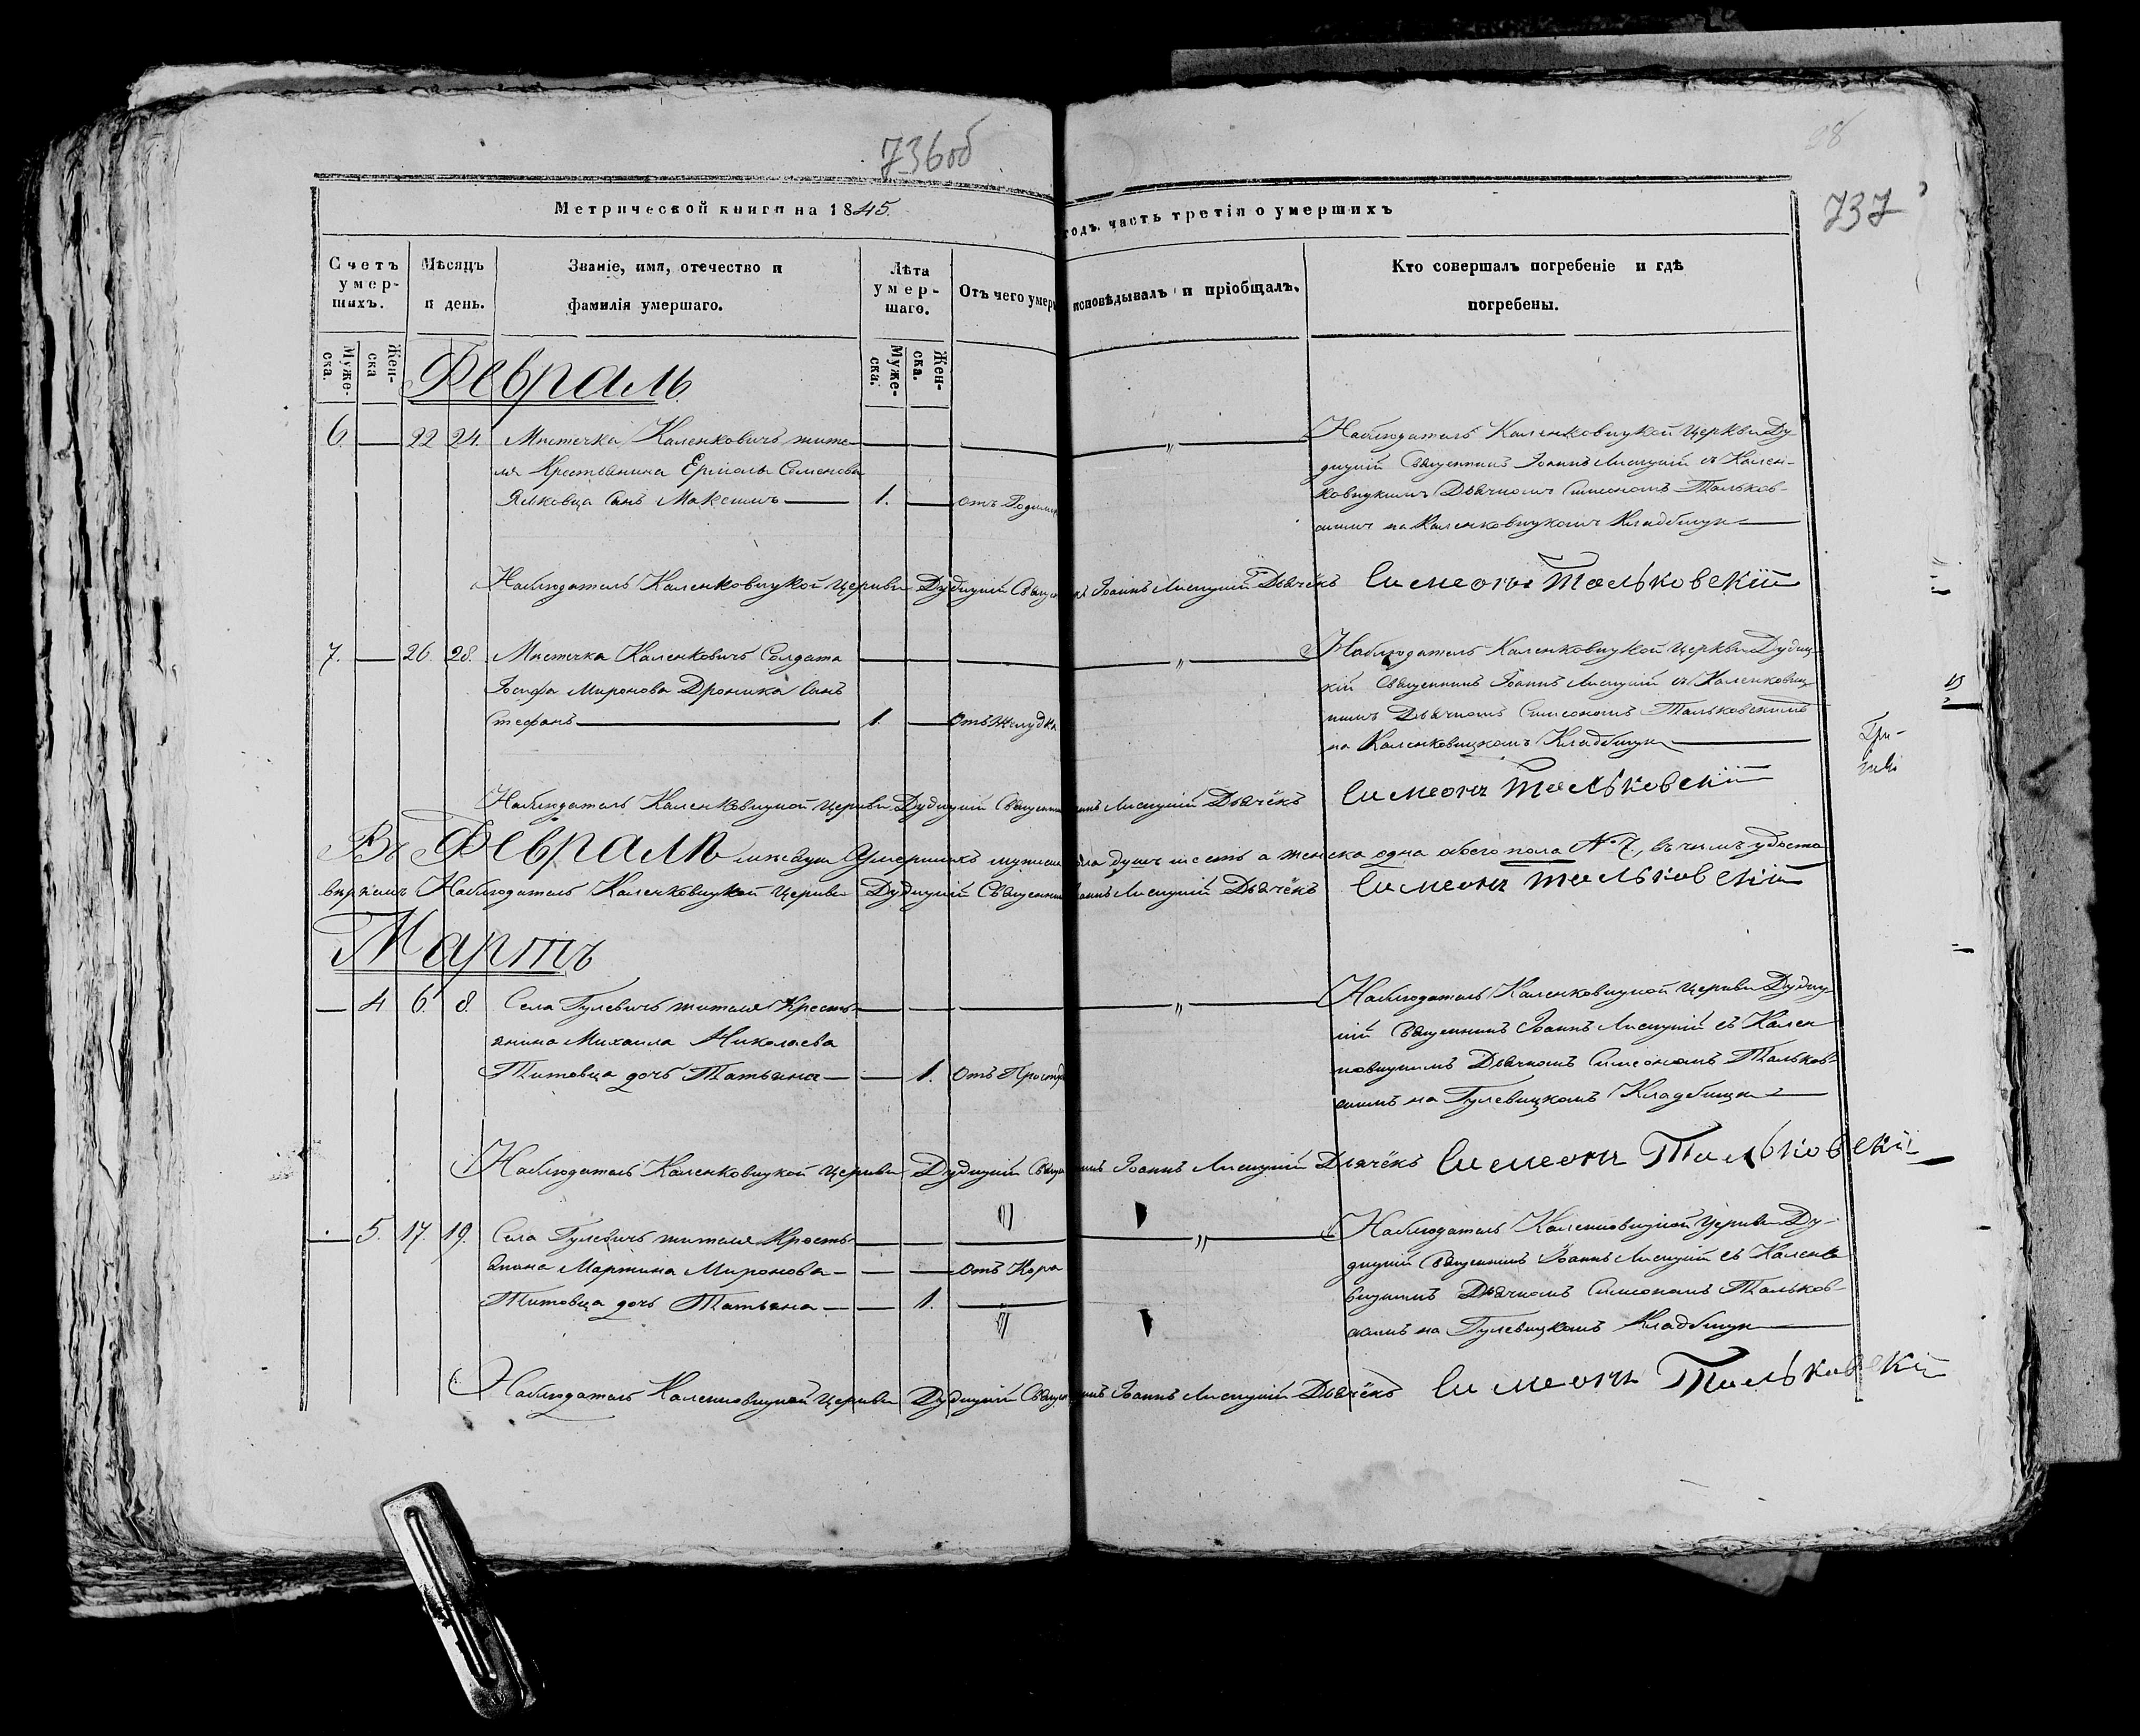 736об
28
737
Метрической книги на 1845.
годъ часть третія о умершихъ
Счетъ умершихъ.
Мѣсяцъ и день.
Званіе, имя, отечество и фамилія умершаго.
Лѣта умершаго.
Отъ чего умер
исповѣдывалъ и пріобщалъ.
Кто совершалъ погребеніе и гдѣ погребены.
Мужеска.
Женска
Мужеска.
Женска.
Февраль
6. — 22 24. Мистечка Каленковичъ жите-
ля Крестьянина Ермолы Семенова
Ялковца Сынъ Максимъ — 1. — отъ Родими
Наблюдатель Каленковицкой Церкви Ду-
дицкій Священникъ Іоаннъ Лисицкій съ Кален-
ковицкимъ Дьячкомъ Симеономъ Тальков-
скимъ на Каленковицкомъ Кладбищѣ
Наблюдатель Каленковицкой Церкви Дудицкій Священ Іоаннъ Лисицкій Дьячёкъ Симеонъ Тальковскій
7. — 26. 28. Мистечка Каленковичъ Солдата
Іосифа Миронова Дроника Сынъ
Стефанъ — 1. — Отъ Желудка
Наблюдатель Каленковицкой Церкви Дудиц-
кій Священникъ Іоаннъ Лисицкій съ Каленковиц-
кимъ Дьячкомъ Симеономъ Тальковскимъ
на Каленковицкомъ Кладбищѣ
Наблюдатель Каленковицкой Церкви Дудицкій Священ Лисицкій Дьячёкъ Симеонъ Тальковскій
Въ Февралѣ мѣсяцѣ Умершихъ мужеска пола душъ шесть а женска одна обоего пола № 7, въ чемъ удосто
вѣряемъ Наблюдатель Каленковицкой Церкви Дудицкій Священник Іоаннъ Лисицкій Дьячёкъ Симеонъ Тальковскій
Мартъ
— 4 6. 8. Села Гулевичъ жителя Кресть-
янина Михаила Николаева
Титовца дочь Татьяна — — 1. Отъ Простуд
Наблюдатель Каленковицкой Церкви Дудиц-
кій Священникъ Іоаннъ Лисицкій съ Кален
ковицкимъ Дьячкомъ Симеономъ Тальков-
скимъ на Гулевицкомъ Кладбищѣ
Наблюдатель Каленковицкой Церкви Дудицкій Священ Іоаннъ Лисицкій Дьячёкъ Симеонъ Тальковскій
— 5. 17. 19. Села Гулевичъ жителя Кресть-
янина Мартина Миронова — — — отъ Кора
Титовца дочь Татьяна — — 1.
Наблюдатель Каленковицкой Церкви Ду-
дицкій Священникъ Іоаннъ Лисицкій съ Каленко
вицкимъ Дьячкомъ Симеономъ Тальков-
скимъ на Гулевицкомъ Кладбищѣ
Наблюдатель Каленковицкой Церкви Дудицкій Священ Іоаннъ Лисицкій Дьячёкъ Симеонъ Тальковскій